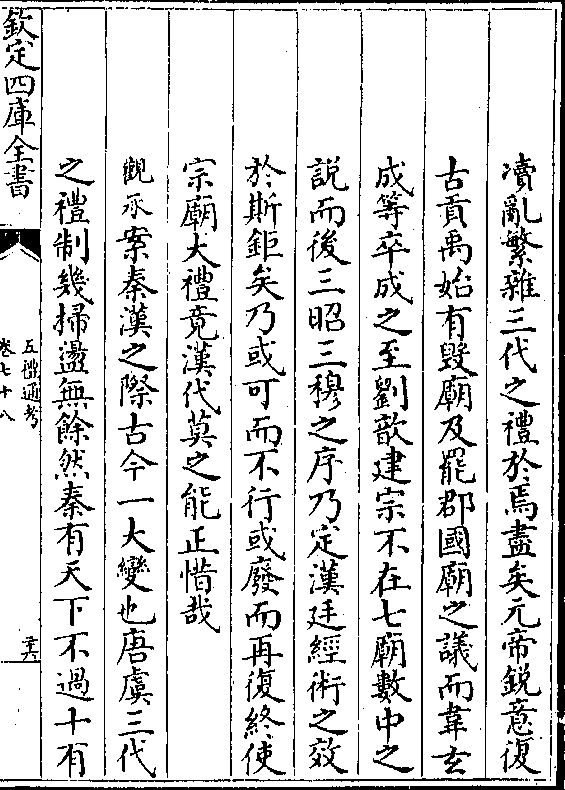 瀆亂繁雜三代之禮於焉盡矣元帝銳意復
古貢禹始有毀廟及罷郡國廟之議而韋玄
成等卒成之至劉歆建宗不在七廟數中之
說而後三昭三穆之序乃定漢廷經術之效
於斯鉅矣乃或可而不行或廢而再復終使
宗廟大禮竟漢代莫之能正惜哉
觀承案秦漢之際古今一大變也唐虞三代
之禮制幾掃盪無餘然秦有天下不過十有
欽定四庫全書
五禮通考
卷七十八